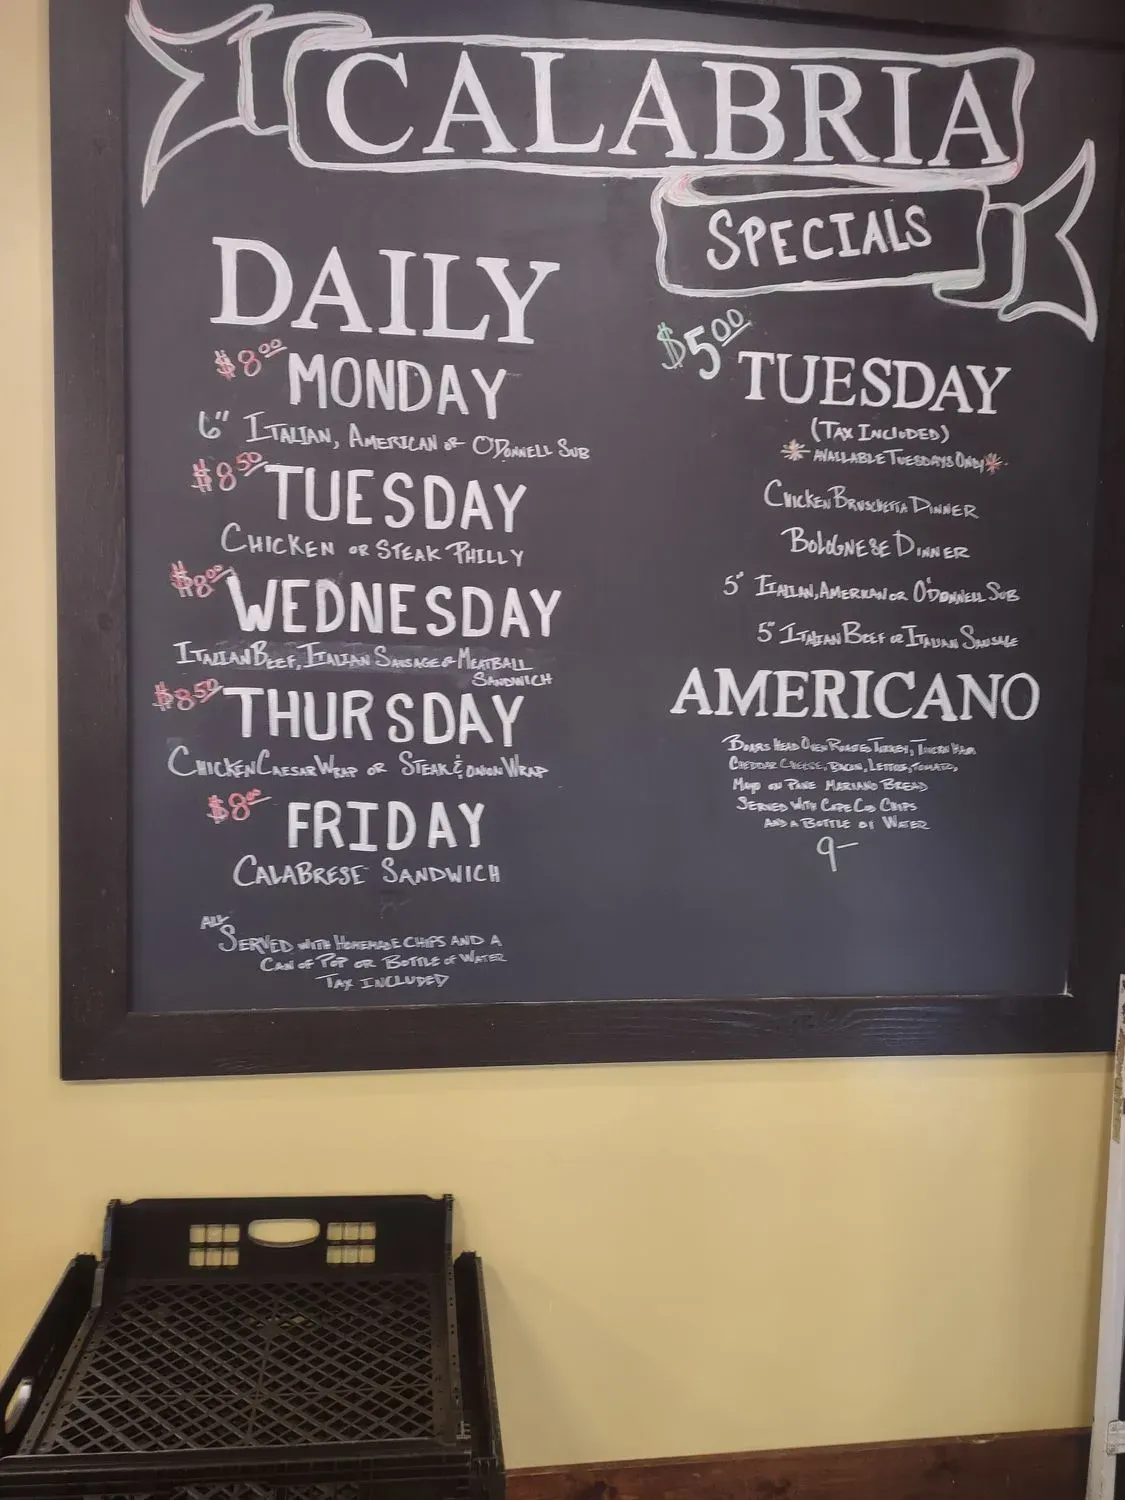 CALABRIA
SPECIALS
DAILY
$8.00 MONDAY
6" ITALIAN, AMERICAN OR O'DONNELL SUB
$8.50 TUESDAY
CHICKEN OR STEAK PHILLY
$8.00 WEDNESDAY
ITALIAN BEEF, ITALIAN SAUSAGE OR MEATBALL
SANDWICH
$8.50 THURSDAY
CHICKEN CAESAR WRAP OR STEAK & ONION WRAP
$8.00 FRIDAY
CALABRESE SANDWICH
ALL SERVED WITH HOMEMADE CHIPS AND A
CAN OF POP OR BOTTLE OF WATER
TAX INCLUDED
$5.00 TUESDAY
(TAX INCLUDED)
* AVAILABLE TUESDAYS ONLY *
CHICKEN BRUSCHETTA DINNER
BOLOGNESE DINNER
5" ITALIAN, AMERICAN OR O'DONNELL SUB
5" ITALIAN BEEF OR ITALIAN SAUSAGE
AMERICANO
BOARS HEAD OVEN ROASTED TURKEY, TAVERN HAM
CHEDDAR CHEESE, BACON, LETTUS, TOMATO,
MAYO ON PANE MARIANO BREAD
SERVED WITH CAPE COD CHIPS
AND A BOTTLE OF WATER
9-